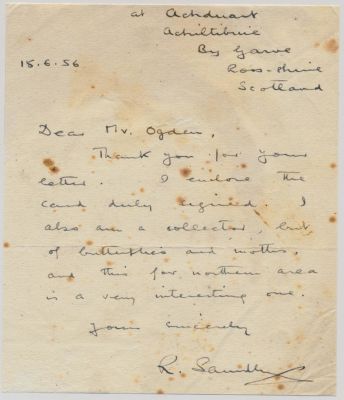 at Achduart
Achiltibuie
By Garve
Ross-shire
Scotland
15.6.56
Dear Mr. Ogden,
Thank you for your
letter. I enclose the
card duly signed. I
also am a collector, but
of butterflies and moths,
and this far northern area
is a very interesting one.
Yours sincerely
R.